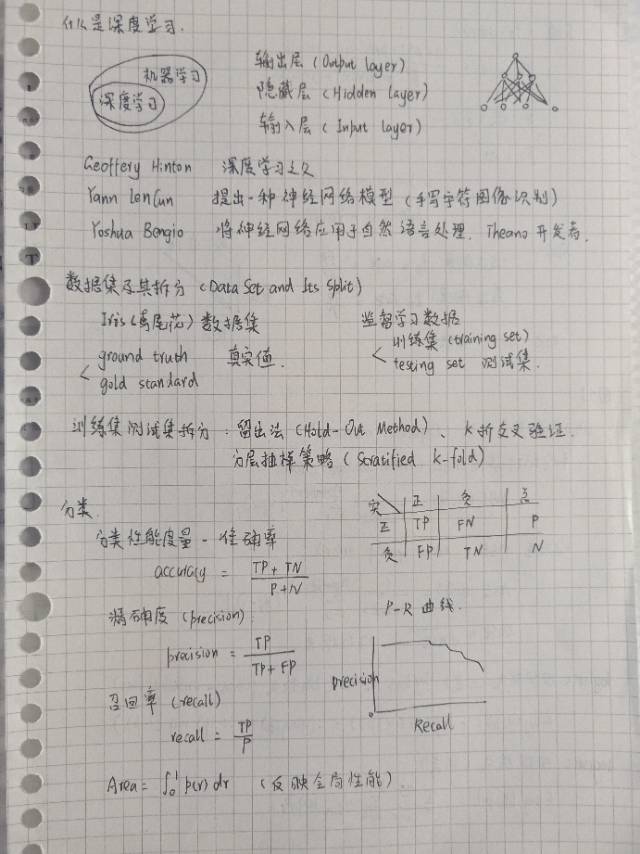 什么是深度学习.
机器学习
深度学习
输出层 (Output layer)
隐藏层 (Hidden Layer)
输入层 (Input layer)
Geoffery Hinton 深度学习之父
Yann LenCun 提出一种神经网络模型 (手写字符图像识别)
Yoshua Bengio 将神经网络应用于自然语言处理. Theano 开发者.
数据集及其拆分 (Data Set and Its Split)
Iris (鸢尾花) 数据集
ground truth 真实值.
gold standard
监督学习数据
训练集 (training set)
testing set 测试集.
训练集测试集拆分: 留出法 (Hold-Out Method)、k折交叉验证.
分层抽样策略 (Scratified k-fold)
分类.
分类性能度量 - 准确率
accuracy = TP + TN / P+N
实 正 负 总
正 TP FN P
负 FP TN N
精确度 (precision)
precision = TP / TP + FP
召回率 (recall)
recall = TP / P
P-R 曲线.
precision
0
Recall
Area = ∫₀¹ p(r) dr (反映全局性能).